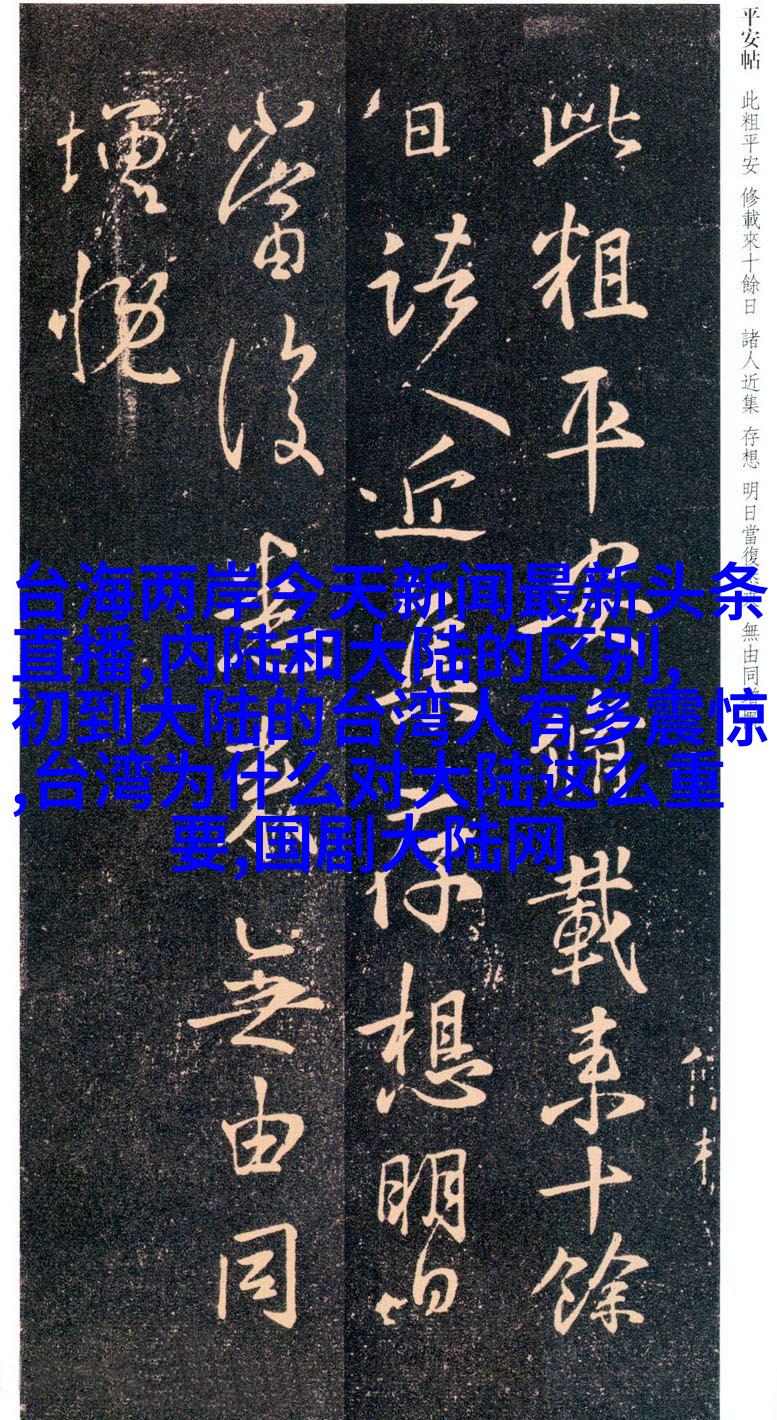 平安帖 此粗平安 修載來十餘日 諸人近集 存想 明日當復 無由同
此粗平安脩載来十餘
日諸人近集存想明日
當復悉来無由同
增慨
台海两岸今天新闻最新头条
直播,内陆和大陆的区别,
初到大陆的台湾人有多震惊
,台湾为什么对大陆这么重
要,国剧大陆网